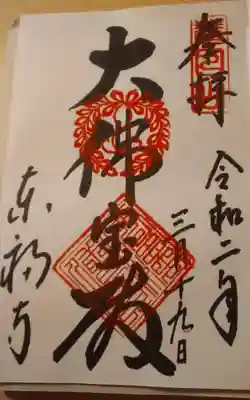 奉拝
令和二年
三月十九日
大佛宝殿
東福寺